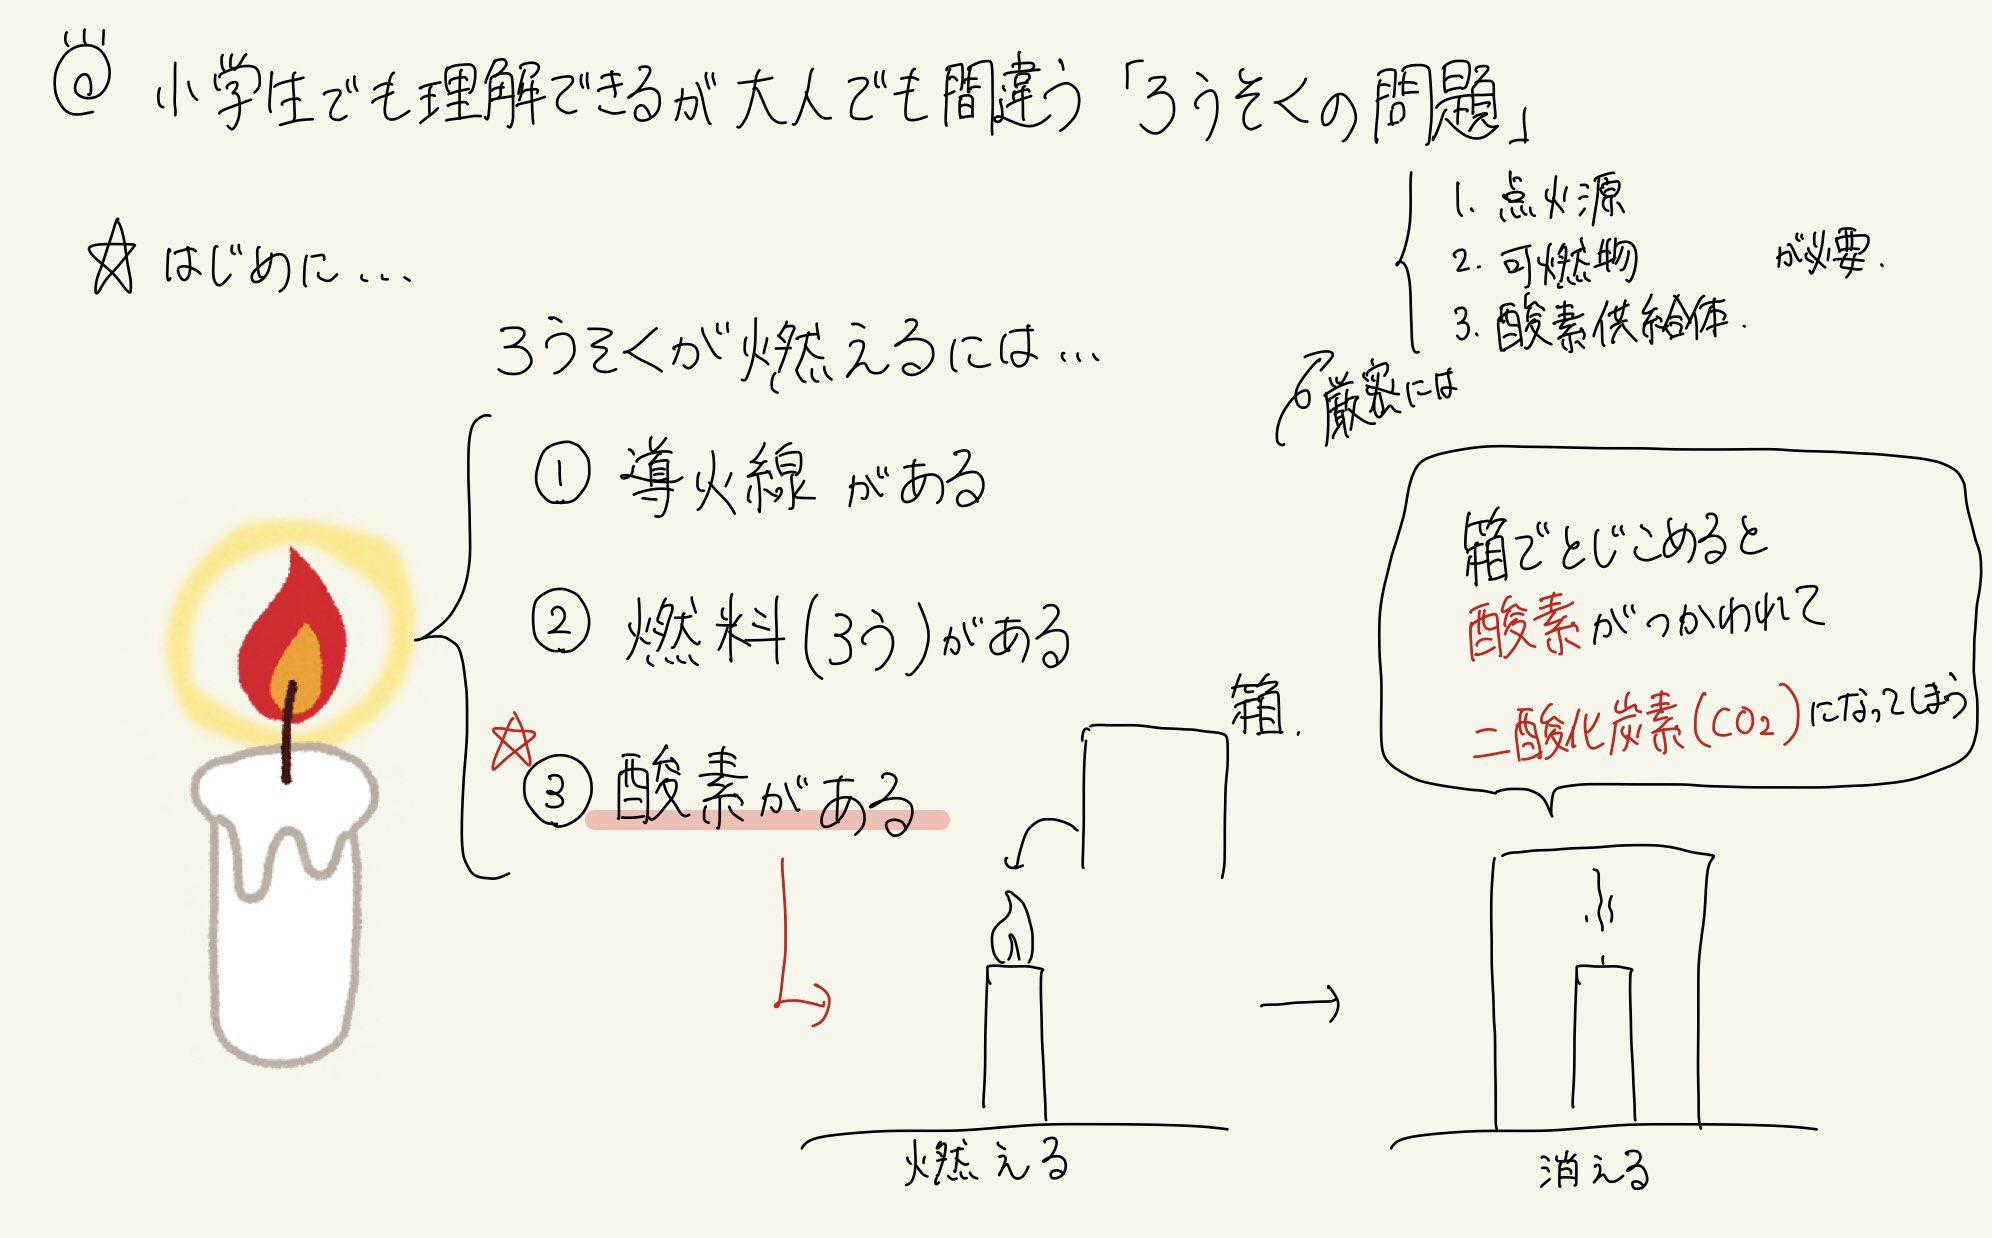 @ 小学生でも理解できるが大人でも間違う「ろうそくの問題」
☆ はじめに...
ろうそくが燃えるには...
① 導火線がある
② 燃料(ろう)がある
☆③ 酸素がある
厳密には
1. 点火源
2. 可燃物
3. 酸素供給体.
が必要.
箱.
燃える
箱でとじこめると
酸素がつかわれて
二酸化炭素(CO2)になってしまう
消える